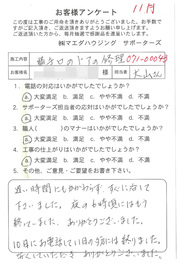 11月
お客様アンケート
この度は工事のご用命を頂きありがとうございました。お手数で
すがご記入頂き、ご返送頂きますようお願い申し上げます。
ご返送頂いた方より、毎月抽選で粗品を進呈いたします。
㈱マエダハウジング サポーターズ
工事内容
修理 071-00043
お客様名 様 担当者
1. 電話の対応はいかがでしたでしょうか?
a. 大変満足 b. 満足 c. やや不満 d. 不満
2. サポーターズ担当者の対応はいかがでしたでしょうか?
a. 大変満足 b. 満足 c. やや不満 d. 不満
3. 職人( )のマナーはいかがでしたでしょうか?
a. 大変満足 b. 満足 c. やや不満 d. 不満
4. 工事の仕上がりはいかがでしたでしょうか?
a. 大変満足 b. 満足 c. やや不満 d. 不満
5. その他、ご意見・ご要望をお書き下さい。
遅い時間にもかかわらず、すぐに応じて
下さいました。夜の6時過ぎにはもう
終っていました。ありがとうございました。
10日にお電話して11日の夕には終りました。
ありがとうございました。